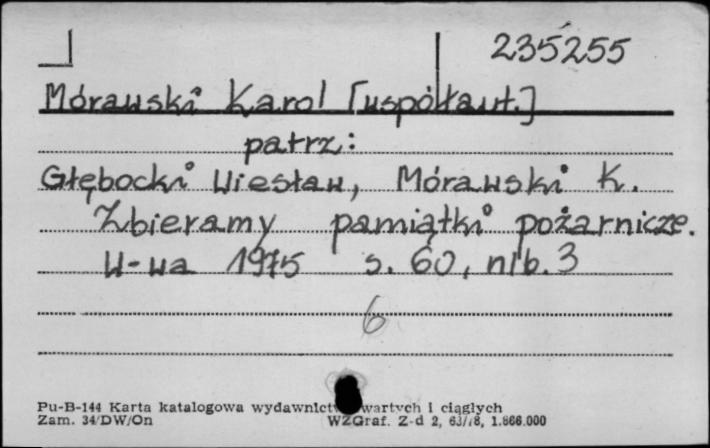 235255
Mórawski Karol [współaut.]
patrz:
Głębocki Wiesław, Mórawski K.
Zbieramy pamiątki pożarnicze.
W-wa 1975 s. 60, nlb. 3
6
Pu-B-144 Karta katalogowa wydawnictw zwartych i ciągłych
Zam. 34/DW/On WZGraf. Z-d 2, 63/78, 1.866.000